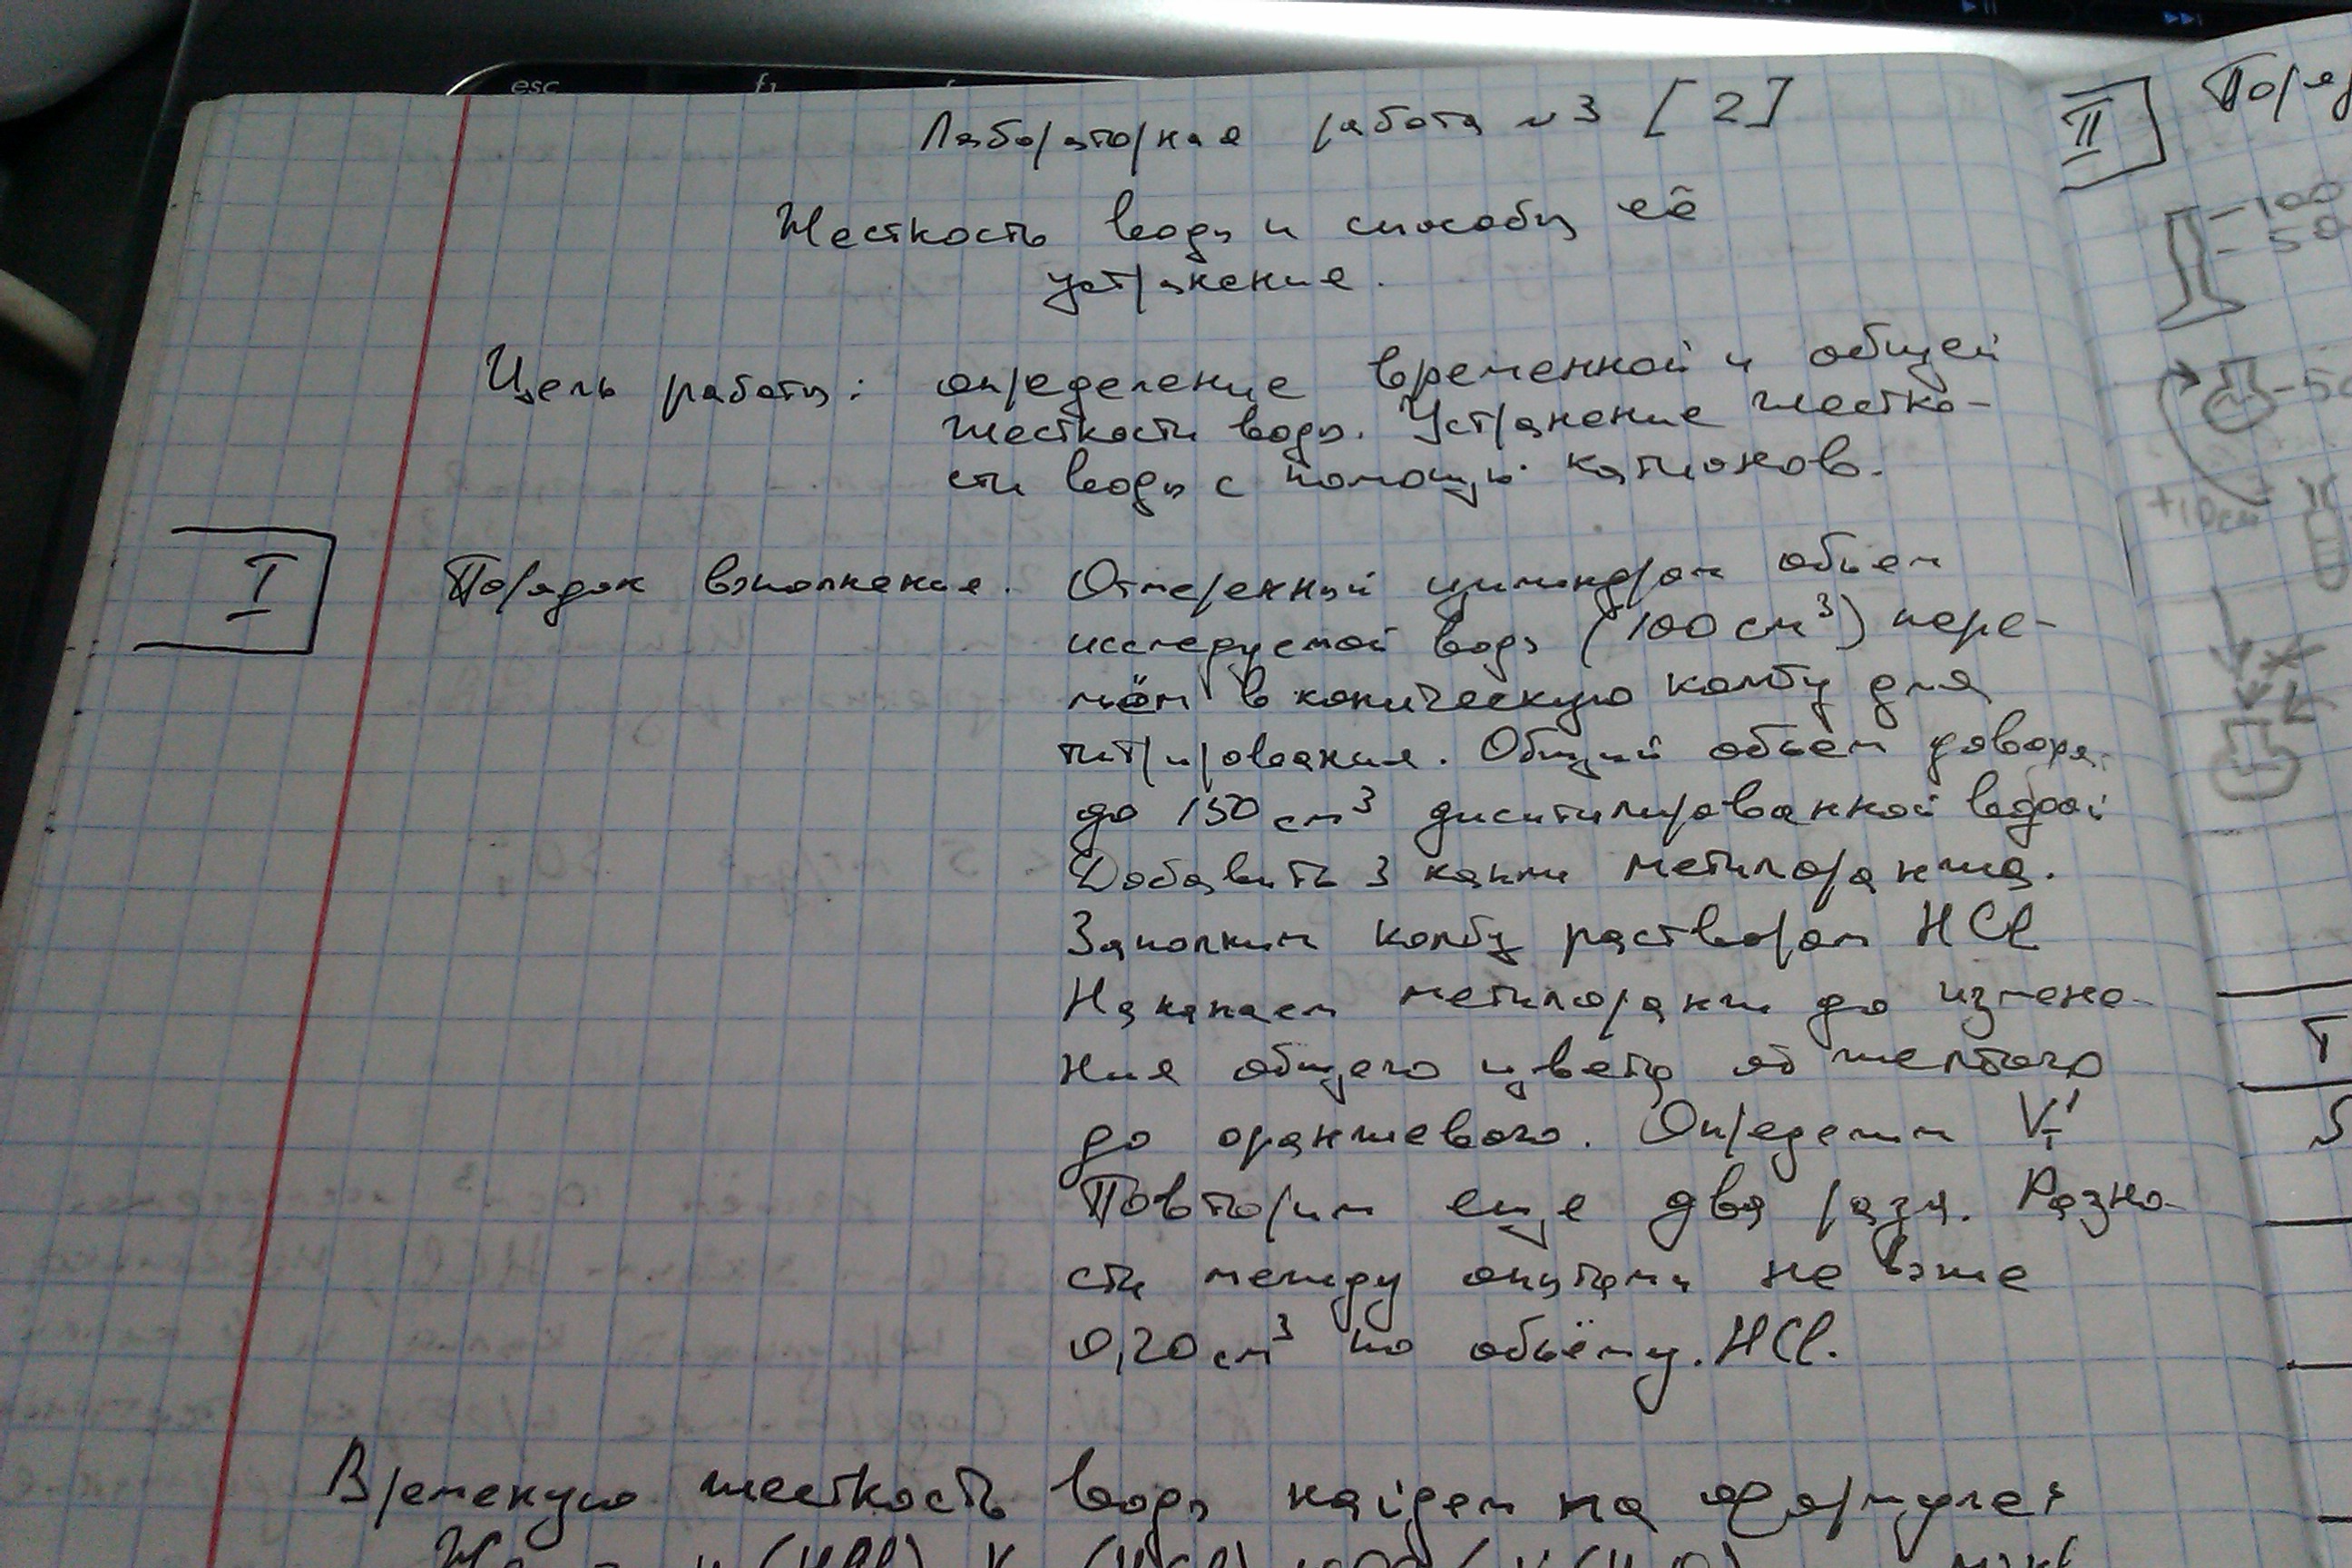 esc
f1
Лабораторная работа №3 [2]
Жесткость воды и способы её
устранения.
Цель работы: определение временной и общей
жесткости воды. Устранение жестко-
сти воды с помощью катионов.
I
Порядок выполнения. Отмеренный цилиндром объем
исследуемой воды (100 см³) пере-
льём в коническую колбу для
титрования. Общий объем доводя
до 150 см³ диситилированной водой
Добавить 3 капли метилоранжа.
Заполним колбу раствором HCl
Накапаем метилоранж до измене-
ния общего цвета от желтого
до оранжевого. Определим V₁'
Повторим еще два раза. Разно-
сти между опытами не выше
0,20 см³ по объёму. HCl.
Временую жесткость воды найдем по формуле:
II
100
50
+10см